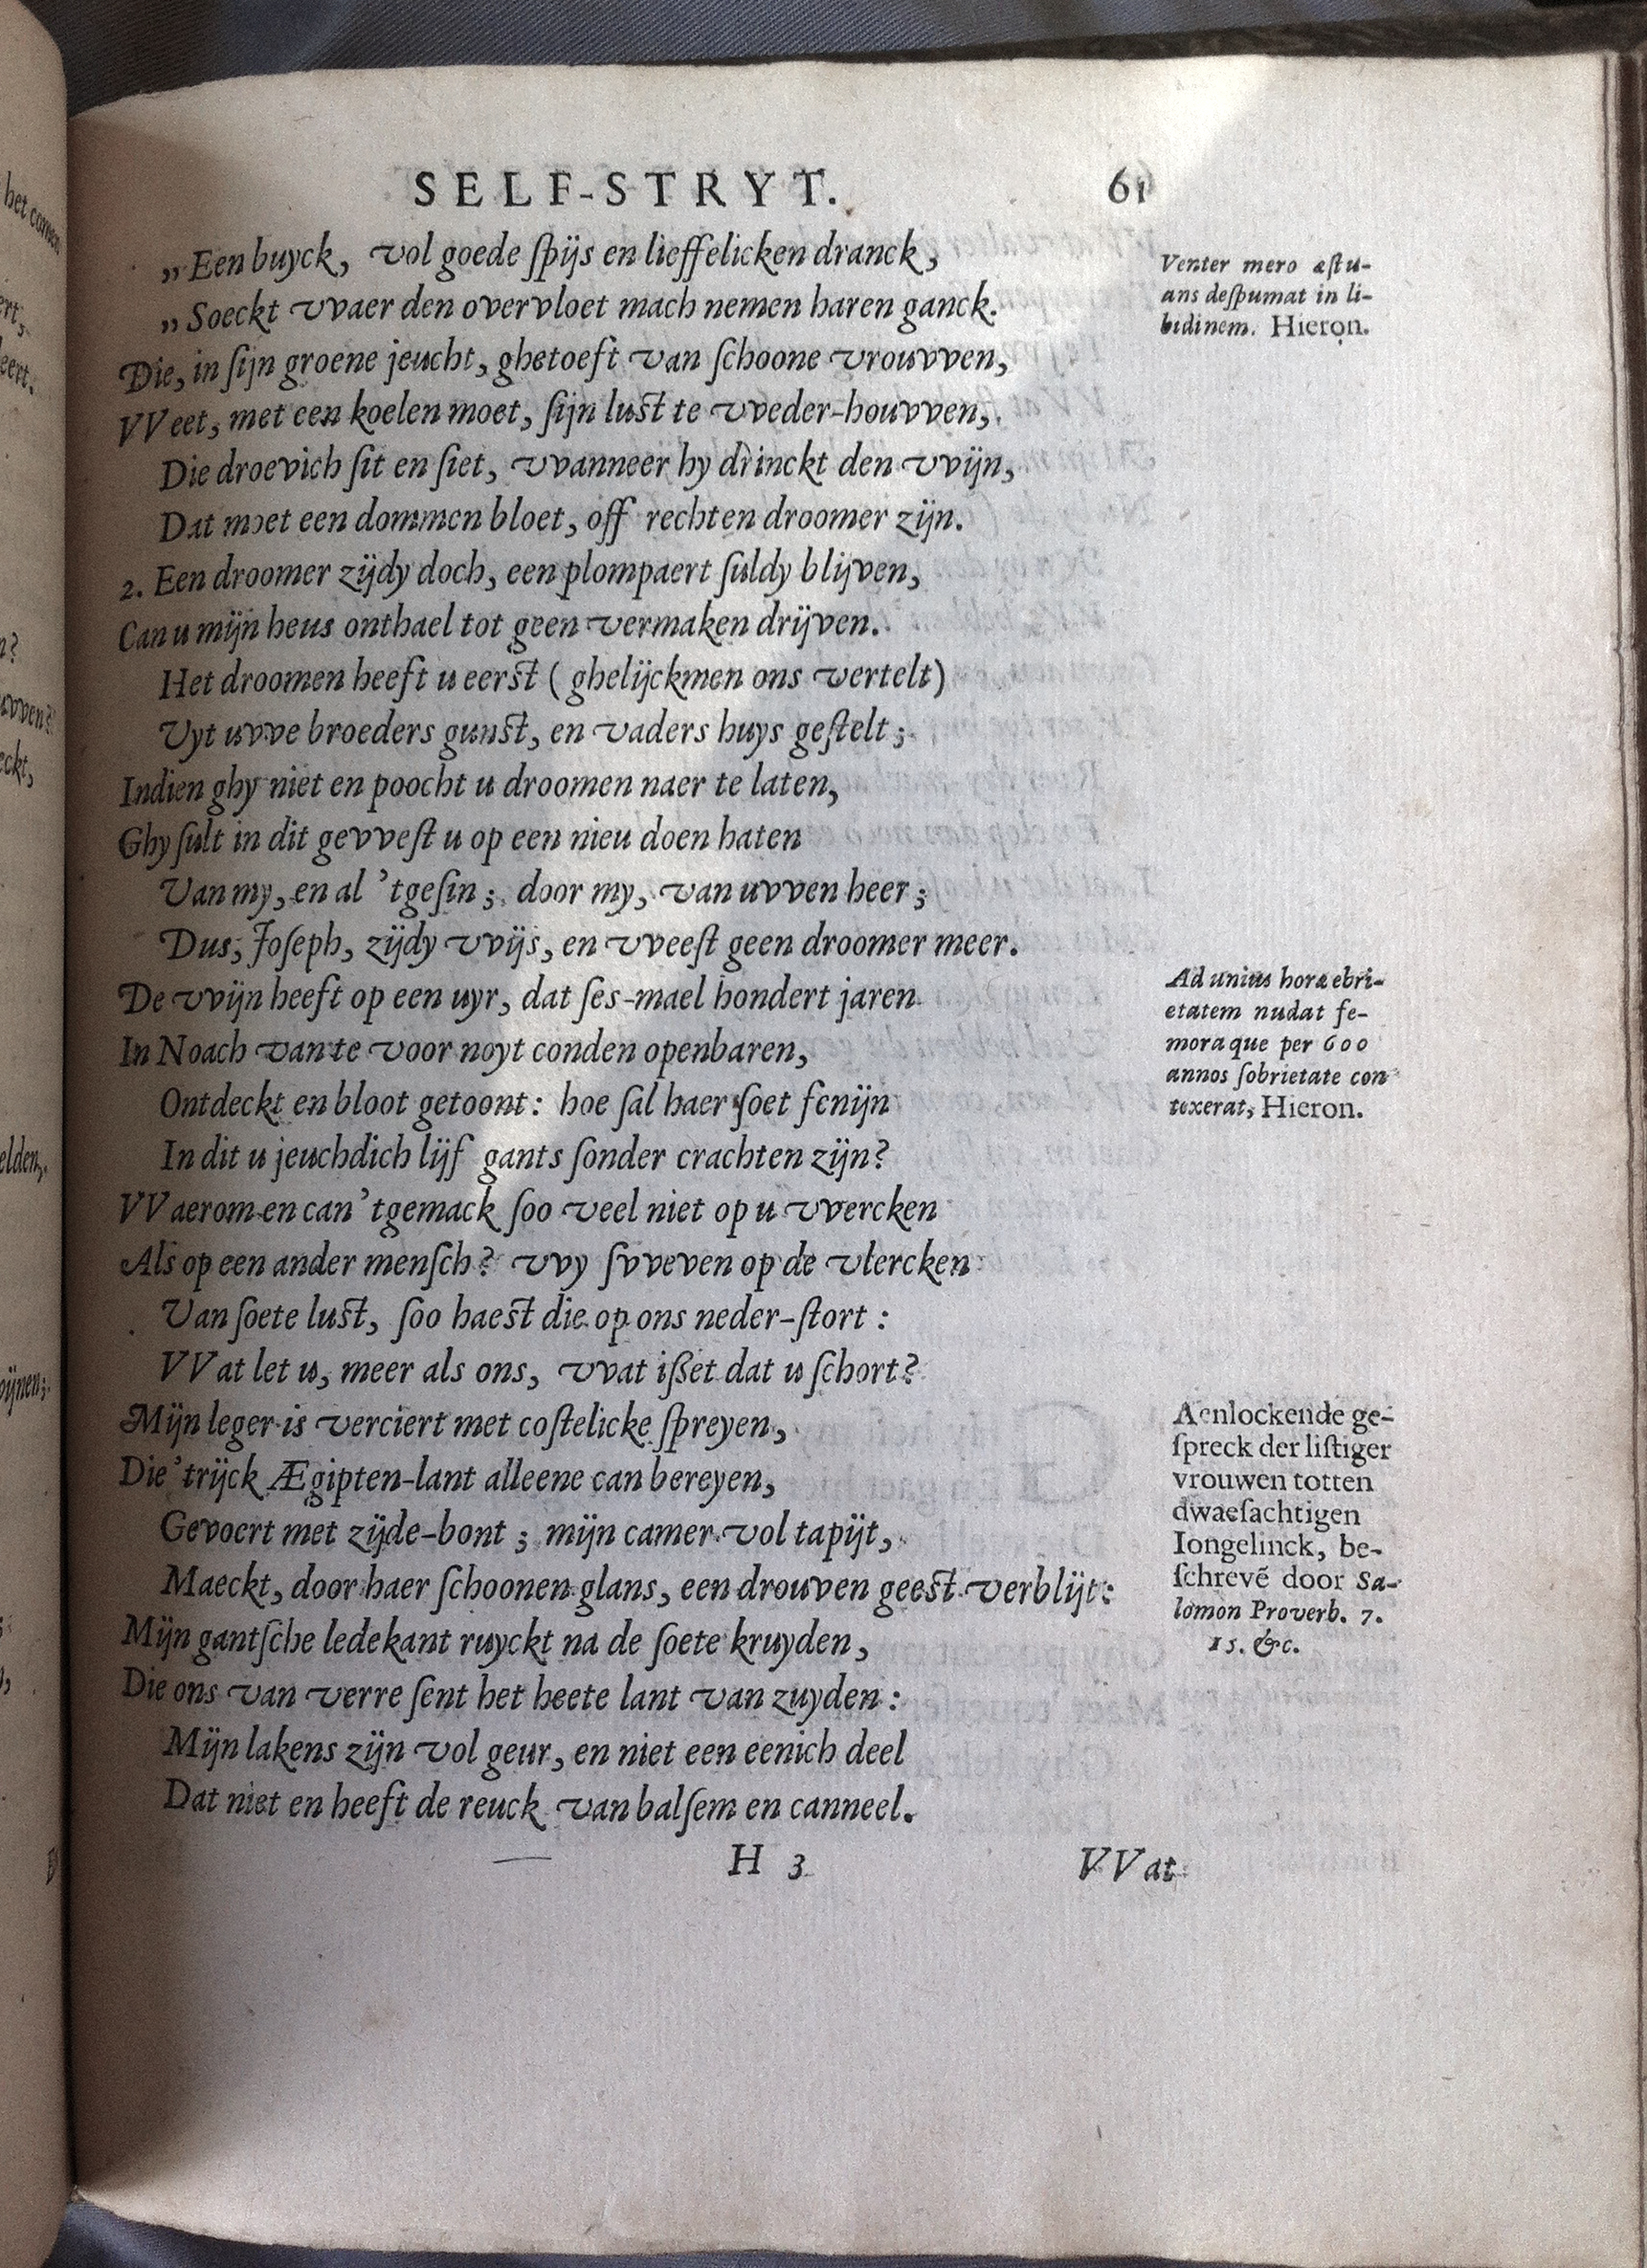 SELF-STRYT. 61
„Een buyck, vol goede ſpijs en lieffelicken dranck,
„Soeckt vvaer den overvloet mach nemen haren ganck.
Die, in ſijn groene jeucht, ghetoeft van ſchoone vrouvven,
VVeet, met een koelen moet, ſijn lust te vveder-houvven,
Die droevich ſit en ſiet, vvanneer hy drinckt den vvijn,
Dat moet een dommen bloet, off rechten droomer zijn.
2. Een droomer zijdy doch, een plompaert ſuldy blijven,
Can u mijn heus onthael tot geen vermaken drijven.
Het droomen heeft u eerst (ghelijckmen ons vertelt)
Uyt uvve broeders gunst, en vaders huys geſtelt;
Indien ghy niet en poocht u droomen naer te laten,
Ghy ſult in dit gevveſt u op een nieu doen haten
Van my, en al 'tgeſin; door my, van uvven heer;
Dus, Joſeph, zijdy vvijs, en vveeſt geen droomer meer.
De vvijn heeft op een uyr, dat ſes-mael hondert jaren
In Noach van te voor noyt conden openbaren,
Ontdeckt en bloot getoont: hoe ſal haer ſoet fenijn
In dit u jeuchdich lijf gants ſonder crachten zijn?
VVaerom en can 'tgemack ſoo veel niet op u vvercken
Als op een ander menſch? vvy ſvveven op de vlercken
Van ſoete lust, ſoo haest die op ons neder-ſtort:
VVat let u, meer als ons, vvat iſſet dat u ſchort?
Mijn leger is verciert met coſtelicke ſpreyen,
Die 'trijck Ægipten-lant alleene can bereyen,
Gevoert met zijde-bont; mijn camer vol tapijt,
Maeckt, door haer ſchoonen glans, een drouven geest verblijt:
Mijn gantſche ledekant ruyckt na de ſoete kruyden,
Die ons van verre ſent het heete lant van zuyden:
Mijn lakens zijn vol geur, en niet een eenich deel
Dat niet en heeft de reuck van balſem en canneel.
H 3 VVat
Venter mero æſtu-
ans deſpumat in li-
bidinem. Hieron.
Ad unius horæ ebri-
etatem nudat fe-
mora que per 600
annos ſobrietate con
texerat, Hieron.
Aenlockende ge-
ſpreck der liſtiger
vrouwen totten
dwaeſachtigen
Iongelinck, be-
ſchrevẽ door Sa-
lomon Proverb. 7.
15. &c.